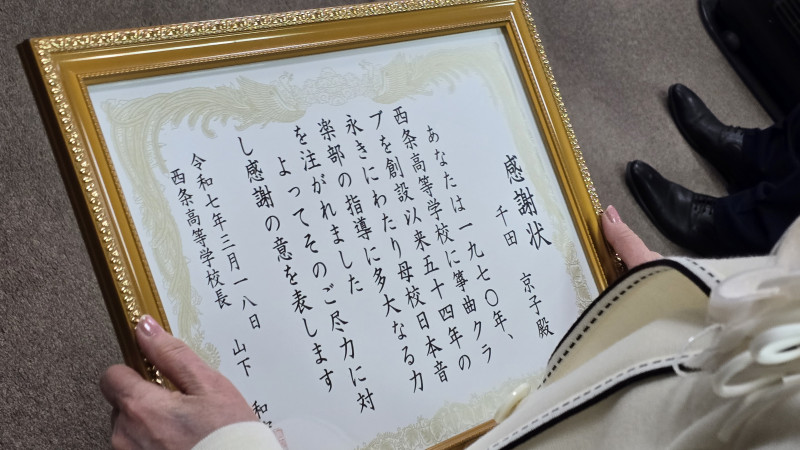 感謝状
千田 京子殿
あなたは一九七〇年、
西条高等学校に箏曲クラ
ブを創設以来五十四年の
永きにわたり母校日本音
楽部の指導に多大なる力
を注がれました
よってそのご尽力に対
し感謝の意を表します
令和七年二月一八日
西条高等学校長 山下 和